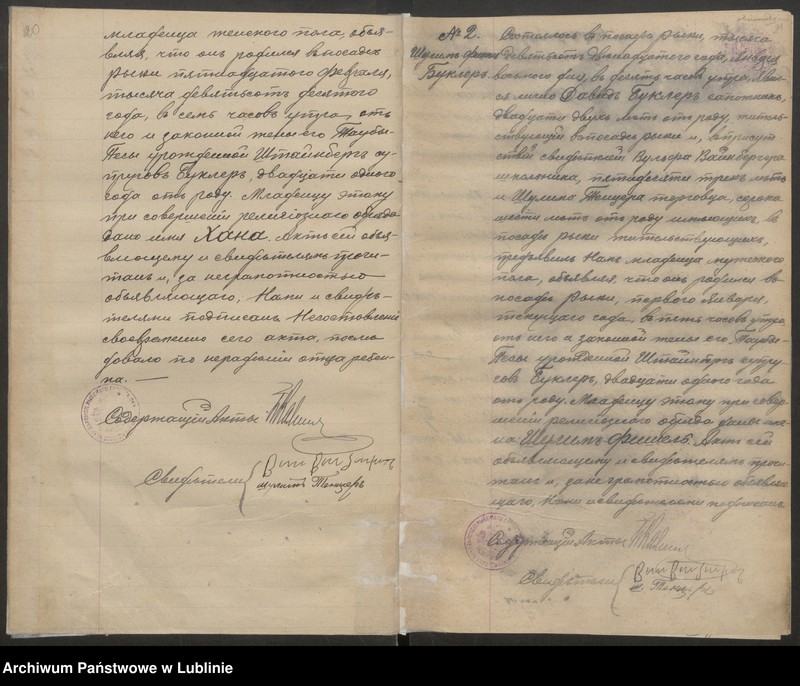 20
младенца женскаго пола, объя-
вляя, что онъ родился въ посадѣ
Рыки пятнадцатого февраля,
тысяча девятьсотъ десятого
года, въ семь часовъ утра, отъ
него и законной жены его Таубы-
Песы урожденной Штайнбергъ су-
пруговъ Буклеръ, двадцати одного
года отъ роду. Младенцу этому
при совершеніи религіознаго обряда
дано имя Хана. Актъ сей объя-
вляющему и свидѣтелямъ прочи-
танъ и, за неграмотностью
объявляющаго, Нами и свидѣ-
телями подписанъ
своевременно сего акта, послѣ-
довало по нерадѣнію отца ребен-
ка. —
Содержащій Акты
Свидѣтели
Шулимъ Тенцеръ
№ 2.
Шулимъ Фишель
Буклеръ
Состоялось въ посадѣ Рыки, тысяча
девятьсотъ двѣнадцатого года, Января
восьмого дня, въ десять часовъ утра. Явил-
ся лично Давидъ Буклеръ сапожникъ,
двадцати двухъ лѣтъ отъ роду, житель-
ствующій въ посадѣ Рыки и, въ присут-
ствіи свидѣтелей Вульфа Вайнберга
школьника, пятидесяти трехъ лѣтъ
и Шулима Тенцера торговца, сорока
шести лѣтъ отъ роду имеющихъ, въ
посадѣ Рыки жительствующихъ,
предъявилъ Намъ младенца мужескаго
пола, объявляя, что онъ родился въ
посадѣ Рыки, перваго Января,
текущаго года, въ пять часовъ утра
отъ него и законной жены его, Таубы-
Песы урожденной Штайнбергъ супру-
говъ Буклеръ, двадцати одного года
отъ роду. Младенцу этому при совер-
шеніи религіознаго обряда дано имя
Шулимъ Фишель. Актъ сей
объявляющему и свидѣтелямъ прочи-
танъ и, за неграмотностью объявляю-
щаго, Нами и свидѣтелями подписанъ
Содержащій Акты
Свидѣтели
Ш. Тенцеръ
Archiwum Państwowe w Lublinie